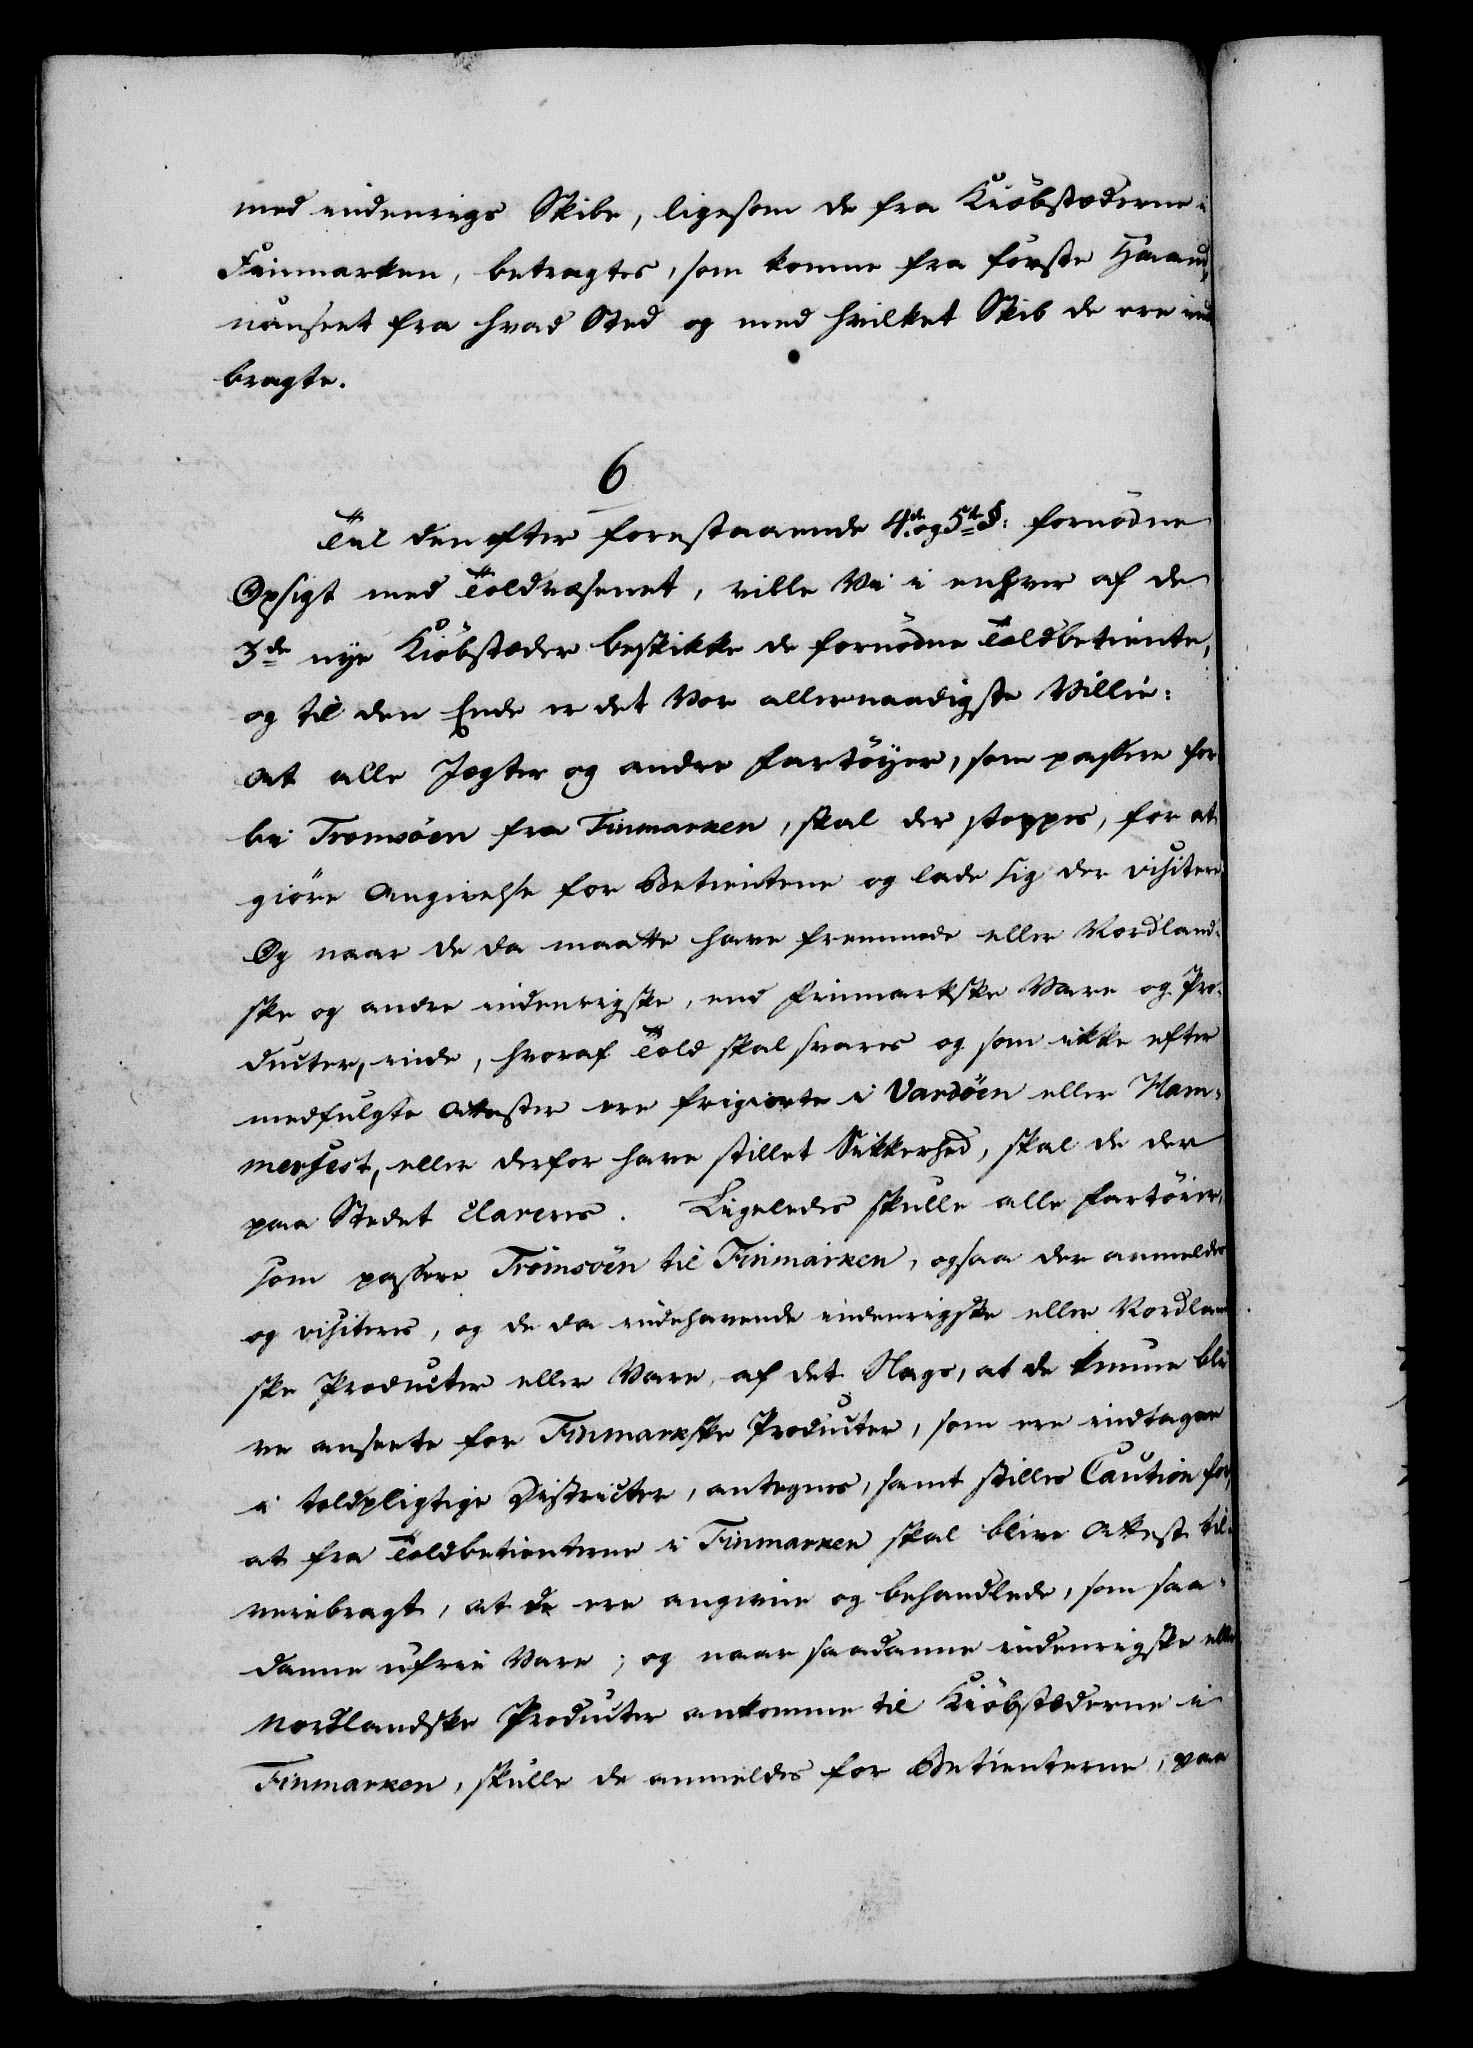 med indenrigs Skibe, ligesom de fra Kiöbstæderne i
Finmarken, betragtes, som komne fra förste Haand,
uanseet fra hvad Sted og med hvilket Skib de ere ind
bragte.
6
Til den efter forestaaende 4de og 5te §: fornödne
Opsigt med Toldvæsenet, ville Vi i enhver af de
3de nye Kiöbstæder beskikke de fornödne Toldbetiente,
og til den Ende er det Vor allernaadigste Villie:
at alle Jægter og andre Fartöyer, som passere for
bi Tromsöen fra Finmarken, skal der stoppes, for at
giöre Angivelse for Betienterne og lade sig der visitere
Og naar de da maatte have fremmede eller Nordland-
ske og andre indenrigske, end Finmarkske Vare og Pro-
ducter, inde, hvoraf Told skal svares og som ikke efter
medfulgte Attester ere frigiorte i Vardöen eller Ham-
merfest, eller derfor have stillet Sikkerhed, skal de der
paa Stedet clareres. Ligeledes skulle alle Fartöier,
som passere Tromsöen til Finmarken, ogsaa der anmeldes
og visiteres, og de da indehavende indenrigske eller Nordland
ske Producter eller Vare, af det Slags, at de kunne bli
ve ansete for Finmarkske Producter, som ere indtagne
i toldpligtige Districter, antegnes, samt stilles Caution for,
at fra Toldbetienterne i Finmarken skal blive Attest til-
veiebragt, at de ere angivne og behandlede, som saa-
danne ufrie Vare; og naar saadanne indenrigske eller
Nordlandske Producter ankomme til Kiöbstæderne i
Finmarken, skulle de anmeldes for Betienterne, paa